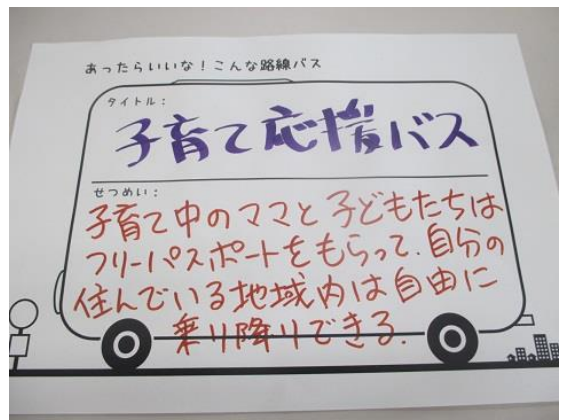 あったらいいな！こんな路線バス
タイトル：
子育て応援バス
せつめい：
子育て中のママと子どもたちは
フリーパスポートをもらって、自分の
住んでいる地域内は自由に
乗り降りできる。